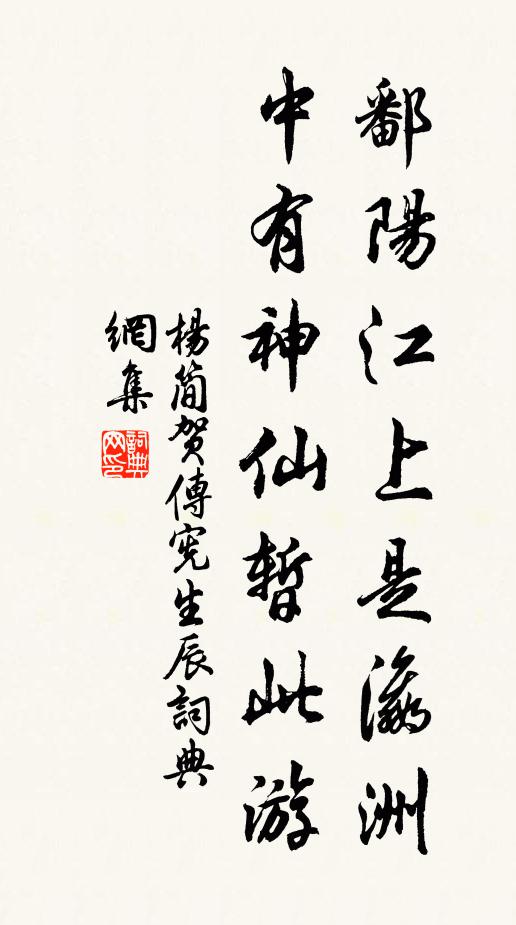 鄱陽江上是瀛洲
中有神仙暫此游
楊簡賀傅憲生辰詞典
網集
詞典
网印